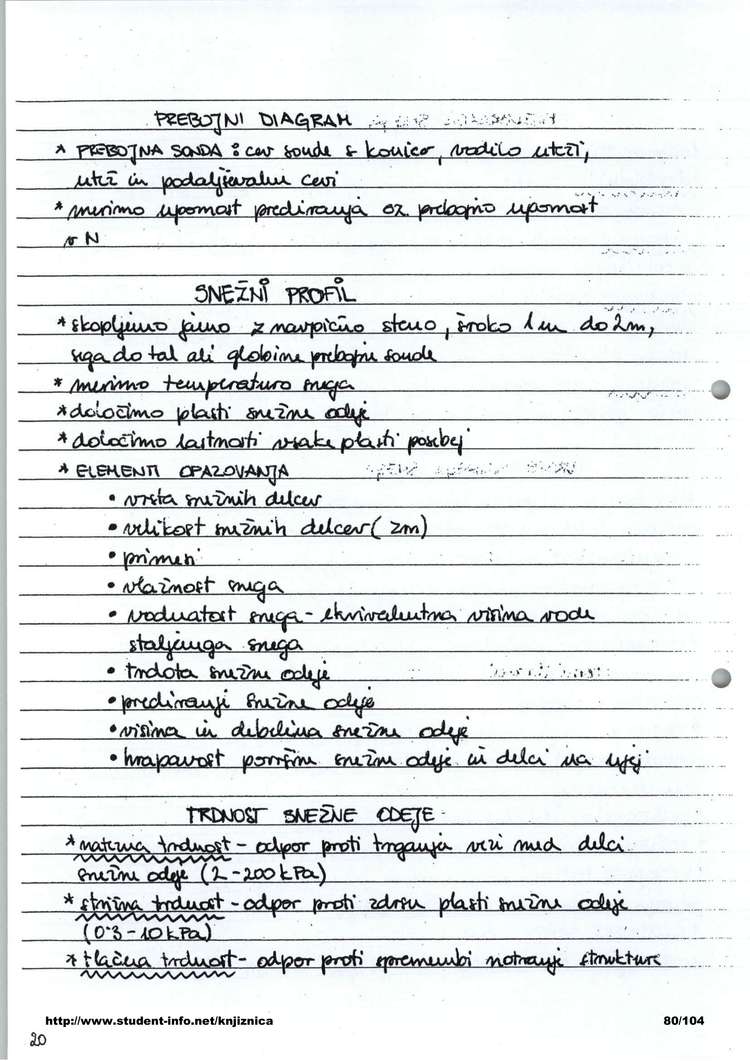 PREBOJNI DIAGRAM
* PREBOJNA SONDA : cev sonde s konico, vodilo uteži,
utež in podaljševalne cevi
* merimo upornost prediranja oz. prebojno upornost
v N
SNEŽNI PROFIL
* skopljemo jamo z navpično steno, široko 1m do 2m,
sega do tal ali globine prebojne sonde
* merimo temperaturo snega
* določimo plasti snežne odeje
* določimo lastnosti vsake plasti posebej
* ELEMENTI OPAZOVANJA
• vrsta snežnih delcev
• velikost snežnih delcev (zm)
• primesi
• vlažnost snega
• vodnatost snega - ekvivalentna višina vode
staljenega snega
• trdota snežne odeje
• prediranje snežne odeje
• višina in debelina snežne odeje
• hrapavost površine snežne odeje in delci na njej
TRDNOST SNEŽNE ODEJE
* natezna trdnost - odpor proti trganja vezi med delci
snežne odeje (2-200 kPa)
* strižna trdnost - odpor proti zdrsu plasti snežne odeje
(0.3-10 kPa)
* tlačna trdnost - odpor proti spremembi notranje strukture
http://www.student-info.net/knjiznica
80/104
20